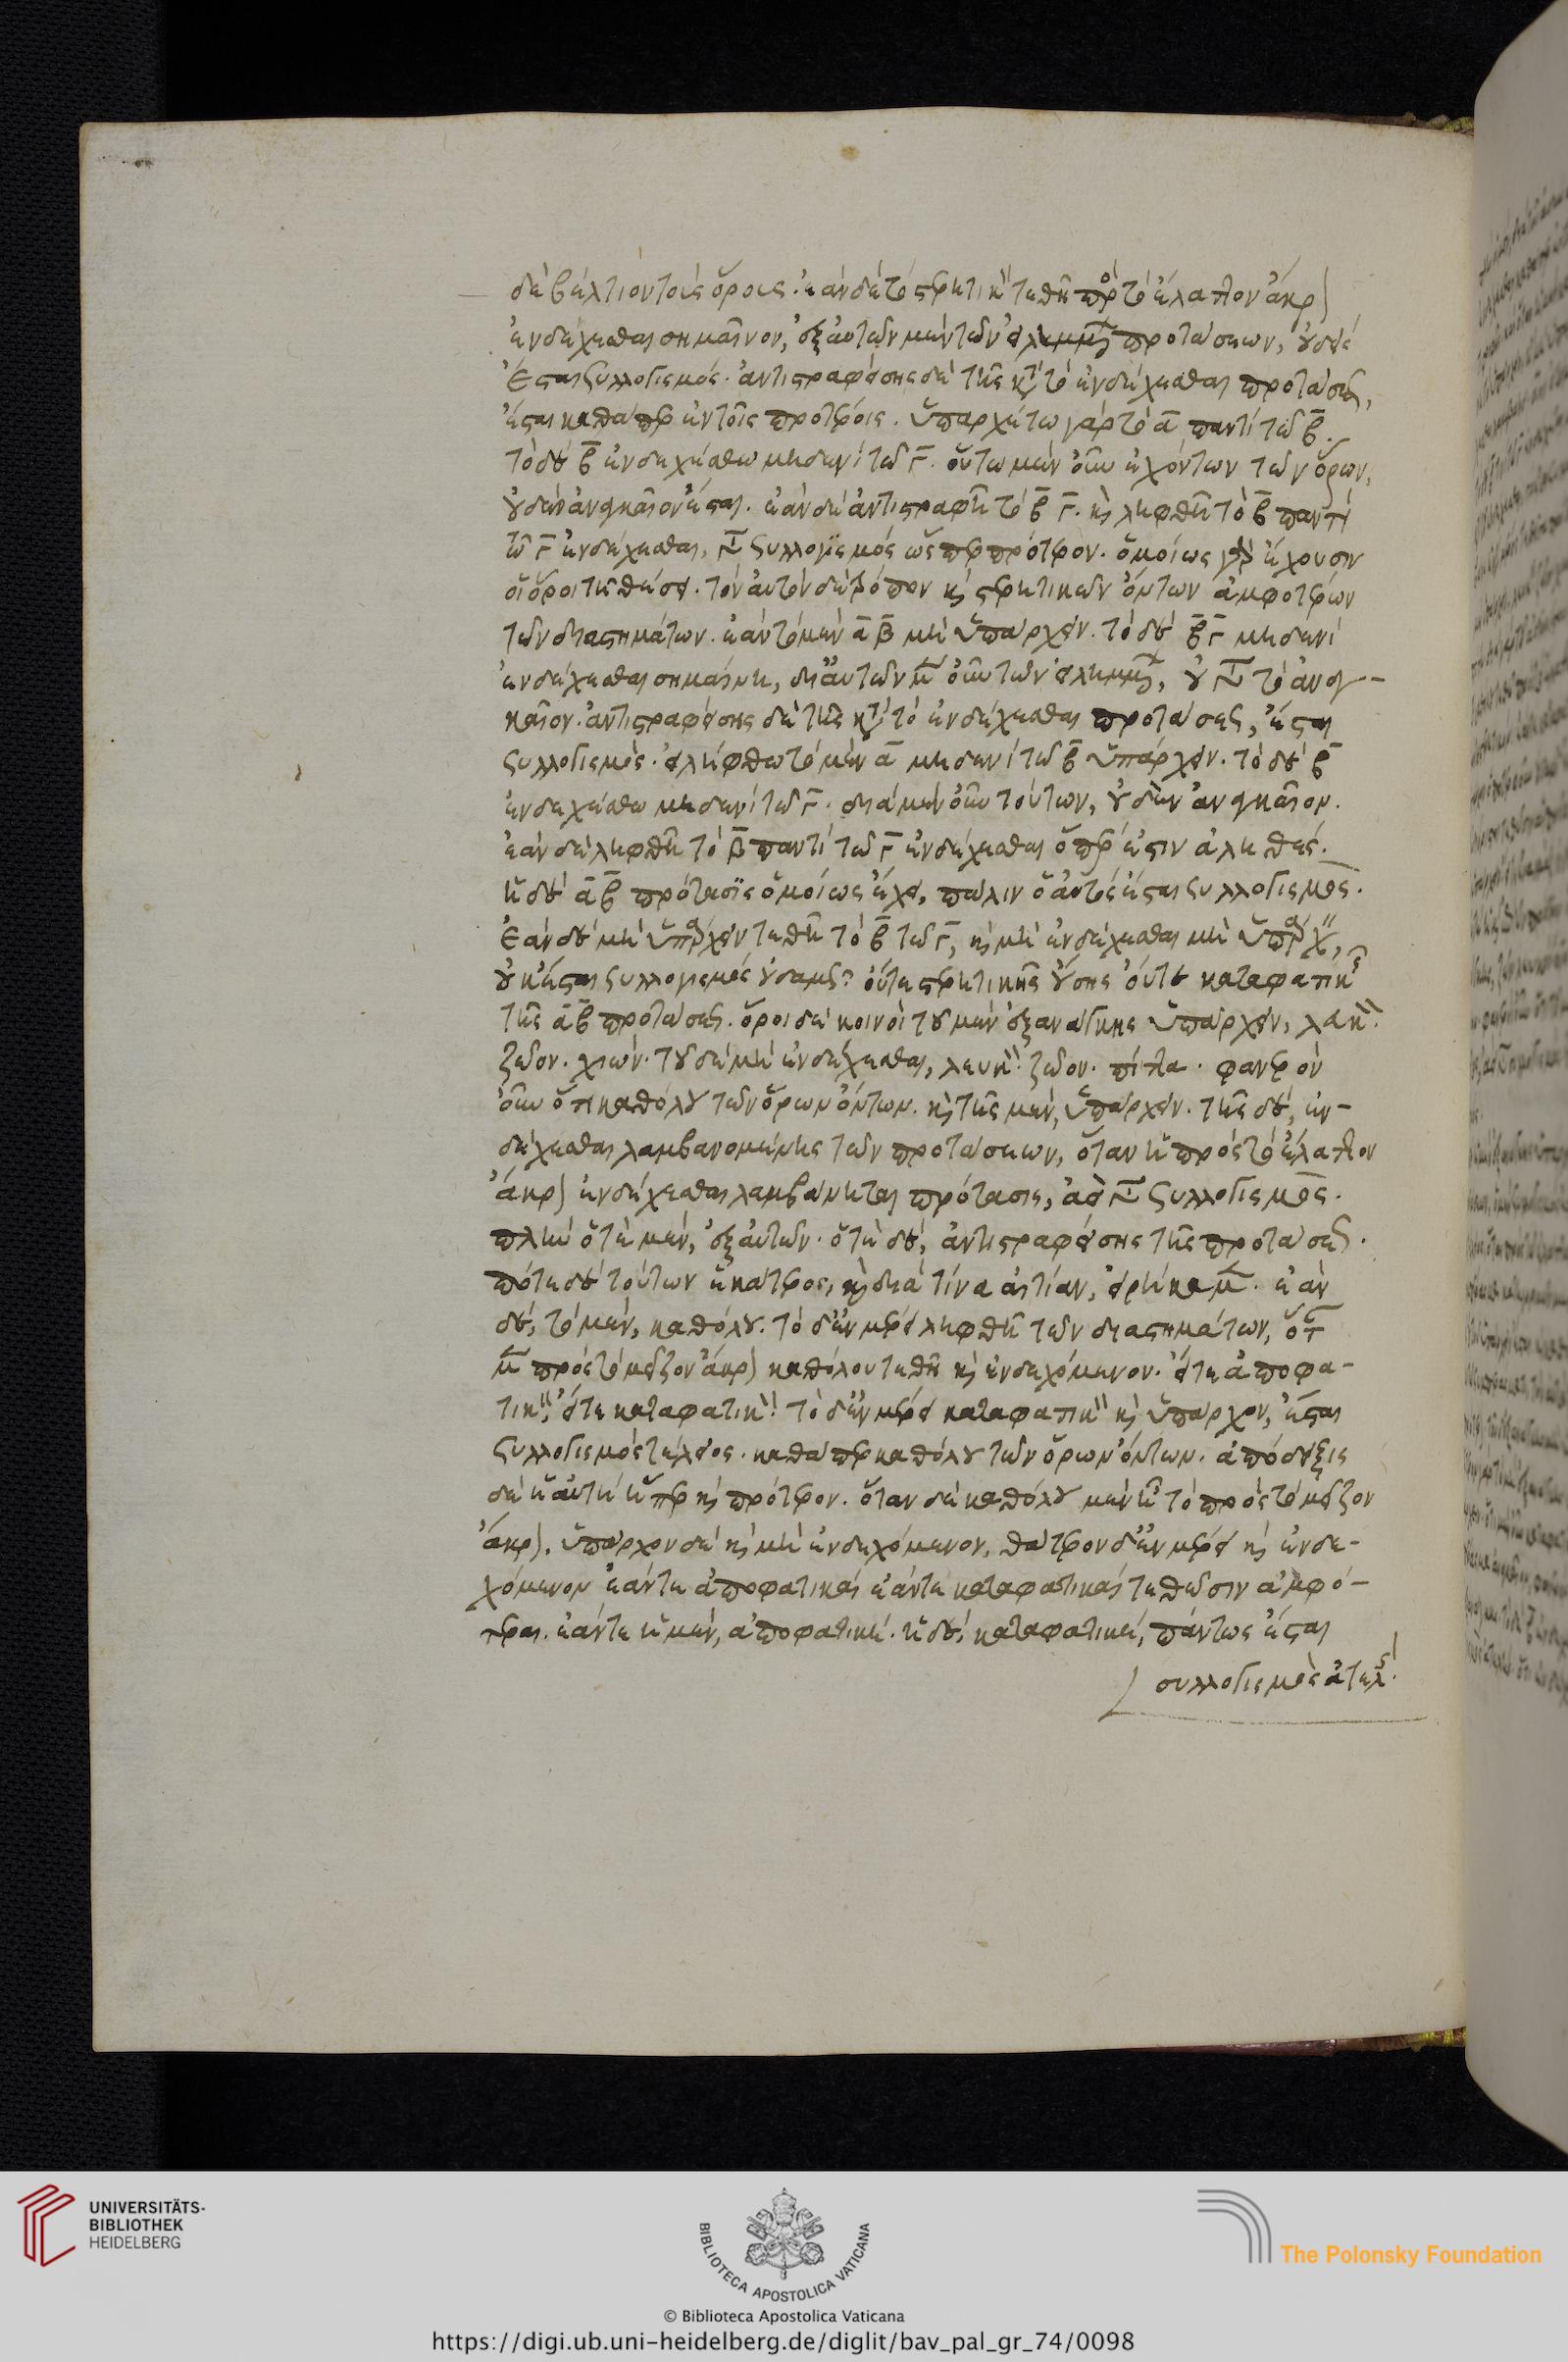 δὲ βέλτιον τοὺς ὅρους. ἐὰν δὲ τὸ στερητικὸν τεθῆ πρὸς τὸ ἔλαττον ἄκρ)
ἐνδέχεσθαι σημαῖνον, ἐξ αὐτῶν μὲν τῶν εἰλημμ(έν) προτάσεων, οὐδεὶ
ἔσται συλλογισμός. ἀντιστραφείσης δὲ τῆς κτ' τὸ ἐνδέχεσθαι προτάσε(ως),
ἔσται καθάπερ ἐν τοῖς προτέροις. ὑπαρχέτω γὰρ τὸ α̅ παντὶ τῶ β̅.
τὸ δὲ β̅ ἐνδεχέσθω μηδενὶ τῶ γ̅. οὕτω μὲν οὖν ἐχόντων τῶν ὅρων,
οὐδὲν ἀναγκαῖον ἔσται. ἐὰν δὲ ἀντιστραφῆ τὸ β̅ γ̅. καὶ ληφθῆ τὸ β̅ παντὶ
τῶ γ̅ ἐνδέχεσθαι, γί(νεται) συλλογισμὸς ὥσπερ πρότερον. ὁμοίως γὰρ ἔχουσιν
οἱ ὅροι τῆ θέσει. τὸν αὐτὸν δὲ τρόπον καὶ στερητικῶν ὄντων ἀμφοτέρων
τῶν διαστημάτων. ἐὰν τὸ μὲν α̅ β̅ μὴ ὑπάρχειν. τὸ δὲ β̅ γ̅ μηδενὶ
ἐνδέχεσθαι σημαίνη, δι' αὐτῶν μ(ὲν) οὖν τῶν εἰλημμ(έν), οὐ γί(νεται) τὸ ἀναγ-
καῖον. ἀντιστραφείσης δὲ τῆς κτ' τὸ ἐνδέχεσθαι προτάσεως, ἔσται
συλλογισμός. εἰλήφθω τὸ μὲν α̅ μηδενὶ τῶ β̅ ὑπάρχειν. τὸ δὲ β̅
ἐνδεχέσθω μηδενὶ τῶ γ̅. διὰ μὲν οὖν τούτων, οὐδὲν ἀναγκαῖον.
ἐὰν δὲ ληφθῆ τὸ β̅ παντὶ τῶ γ̅ ἐνδέχεσθαι ὅπερ ἐστὶν ἀληθές.
ἡ δὲ α̅ β̅ πρότασις ὁμοίως ἔχει, πάλιν ὁ αὐτὸς ἔσται συλλογισμός.
ἐὰν δὲ μὴ ὑπάρχειν τεθῆ τὸ β̅ τῶ γ̅, καὶ μὴ ἐνδέχεσθαι μὴ ὑπάρχ(ειν),
οὐκ ἔσται συλλογισμὸς οὐδαμῶς οὔτε στερητικῆς οὔσης οὔτε καταφατικ(ῆς)
τῆς α̅ β̅ προτάσεως. ὅροι δὲ κοινοὶ τοῦ μὲν ἐξ ἀνάγκης ὑπάρχειν, λευκ(όν).
ζῶον. χιών. τοῦ δὲ μὴ ἐνδέχεσθαι, λευκ(όν). ζῶον. πίττα. φανερὸν
οὖν ὅτι καθόλου τῶν ὅρων ὄντων. καὶ τῆς μὲν, ὑπάρχειν. τῆς δὲ, ἐν-
δέχεσθαι λαμβανομένης τῶν προτάσεων, ὅταν ἡ πρὸς τὸ ἔλαττον
ἄκρ) ἐνδέχεσθαι λαμβάνηται πρότασις, ἀεὶ γί(νεται) συλλογισμός.
πλὴν ὁτὲ μὲν, ἐξ αὐτῶν. ὁτὲ δὲ, ἀντιστραφείσης τῆς προτάσεως.
πότε δὲ τούτων ἑκάτερος, καὶ διὰ τίνα αἰτίαν, εἰρήκαμ(εν). ἐὰν
δὲ, τὸ μὲν, καθόλου. τὸ δ' ἐν μέρει ληφθῆ τῶν διαστημάτων, ὅτ(αν)
μ(ὲν) πρὸς τὸ μεῖζον ἄκρ) καθόλου τεθῆ καὶ ἐνδεχόμενον. εἴτε ἀποφα-
τικ(όν), εἴτε καταφατικ(όν). τὸ δ' ἐν μέρει καταφατικ(όν) καὶ ὑπάρχον, ἔσται
συλλογισμὸς τέλειος. καθάπερ καθόλου τῶν ὅρων ὄντων. ἀπόδειξις
δὲ ἡ αὐτὴ ἥπερ καὶ πρότερον. ὅταν δὲ καθόλου μὲν ἦ τὸ πρὸς τὸ μεῖζον
ἄκρ). ὑπάρχον δὲ καὶ μὴ ἐνδεχόμενον, θάτερον δ' ἐν μέρει καὶ ἐνδε-
χόμενον ἐάν τε ἀποφατικαὶ ἐάν τε καταφατικαὶ τεθῶσιν ἀμφό-
τεραι. ἐάν τε ἡ μὲν, ἀποφατική. ἡ δὲ, καταφατική, πάντως ἔσται
συλλογισμὸς ἀτελ(ής).
UNIVERSITÄTS-
BIBLIOTHEK
HEIDELBERG
BIBLIOTECA APOSTOLICA VATICANA
The Polonsky Foundation
© Biblioteca Apostolica Vaticana
https://digi.ub.uni-heidelberg.de/diglit/bav_pal_gr_74/0098